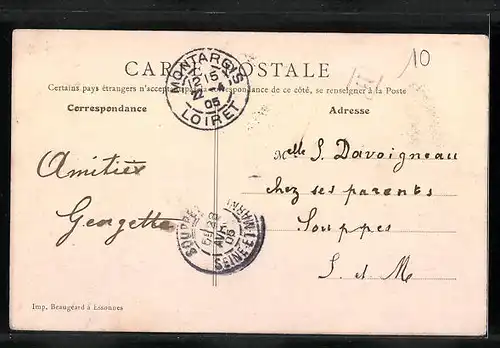 10
CARTE POSTALE
Certains pays étrangers n'acceptant pas la correspondance de ce côté, se renseigner à la Poste
Correspondance
Adresse
MONTARGIS
15
05
LOIRET
Amitiés
Georgette
Melle S. Davoigneau
chez ses parents
Souppes
S. et M
SOUPPES
28
AVRIL
05
SEINE-ET-MARNE
Imp. Beaugeard à Essonnes